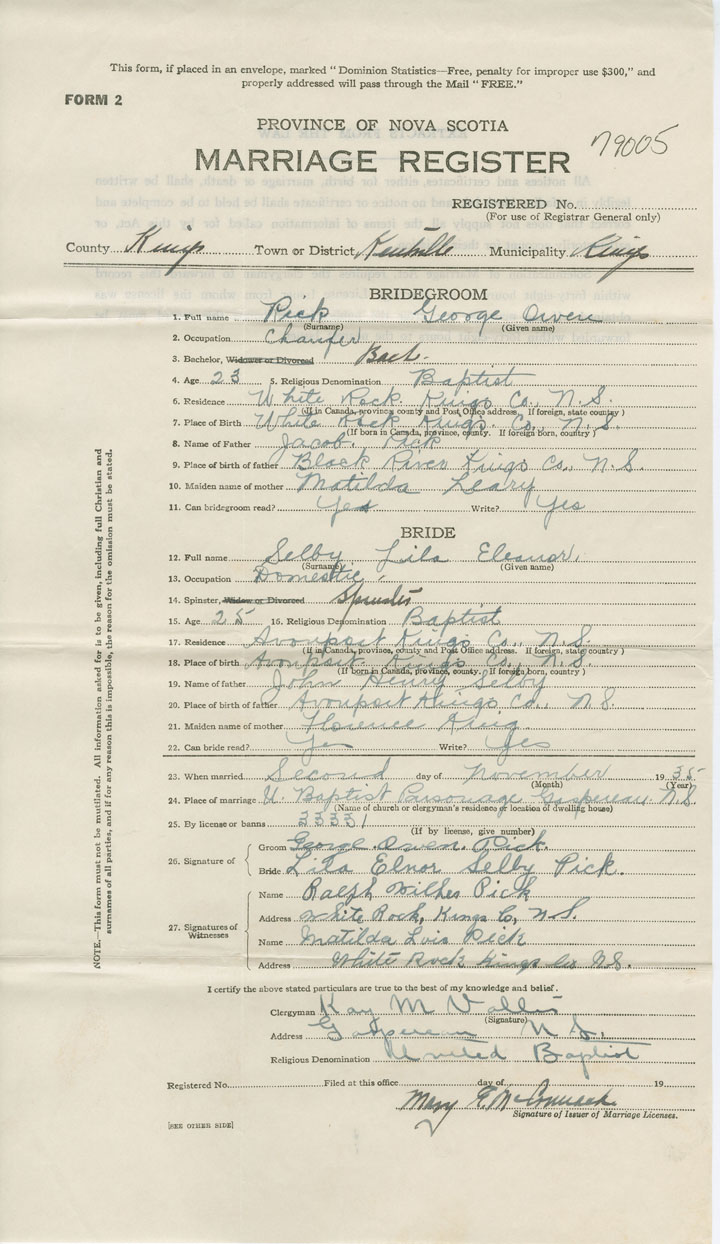 This form, if placed in an envelope, marked "Dominion Statistics—Free, penalty for improper use $300," and
properly addressed will pass through the Mail "FREE."
FORM 2
PROVINCE OF NOVA SCOTIA
79005
MARRIAGE REGISTER
REGISTERED No.
(For use of Registrar General only)
County Kings Town or District Kentville Municipality Kings
BRIDEGROOM
1. Full name Pick George Owen
(Surname) (Given name)
2. Occupation Chaufer
3. Bachelor, Widower or Divorced Bach.
4. Age 23 5. Religious Denomination Baptist
6. Residence White Rock Kings Co., N.S.
(If in Canada, province, county and Post Office address. If foreign, state country)
7. Place of Birth White Rock Kings Co., N.S.
(If born in Canada, province, county. If foreign born, country)
8. Name of Father Jacob Pick
9. Place of birth of father Black River Kings Co., N.S.
10. Maiden name of mother Matilda Leary
11. Can bridegroom read? Yes Write? Yes
BRIDE
12. Full name Selby Lila Eleanor,
(Surname) (Given name)
13. Occupation Domestic
14. Spinster, Widow or Divorced Spinster
15. Age 25 16. Religious Denomination Baptist
17. Residence Avonport Kings Co., N.S.
(If in Canada, province, county and Post Office address. If foreign, state country)
18. Place of birth Avonport Kings Co., N.S.
(If born in Canada, province, county. If foreign born, country)
19. Name of father John Henry Selby
20. Place of birth of father Avonport Kings Co., N.S.
21. Maiden name of mother Florence King
22. Can bride read? Yes Write? Yes
23. When married Second day of November 1935
(Month) (Year)
24. Place of marriage U. Baptist Parsonage Gaspereau N.S.
(Name of church or clergyman's residence or location of dwelling house)
25. By license or banns 33331
(If by license, give number)
26. Signature of
Groom George Owen. Pick.
Bride Lila Elnor Selby Pick.
27. Signatures of Witnesses
Name Ralph Wilkes Pick
Address White Rock, Kings Co, N.S.
Name Matilda Lois Pick
Address White Rock Kings Co N.S.
I certify the above stated particulars are true to the best of my knowledge and belief.
Clergyman M
(Signature)
Address Gaspereau N.S.
Religious Denomination United Baptist
Registered No. Filed at this office day of 19
Mary E. McCormack
Signature of Issuer of Marriage Licenses.
[SEE OTHER SIDE]
NOTE.—This form must not be mutilated. All information asked for is to be given, including full Christian and
surnames of all parties, and if for any reason this is impossible, the reason for the omission must be stated.